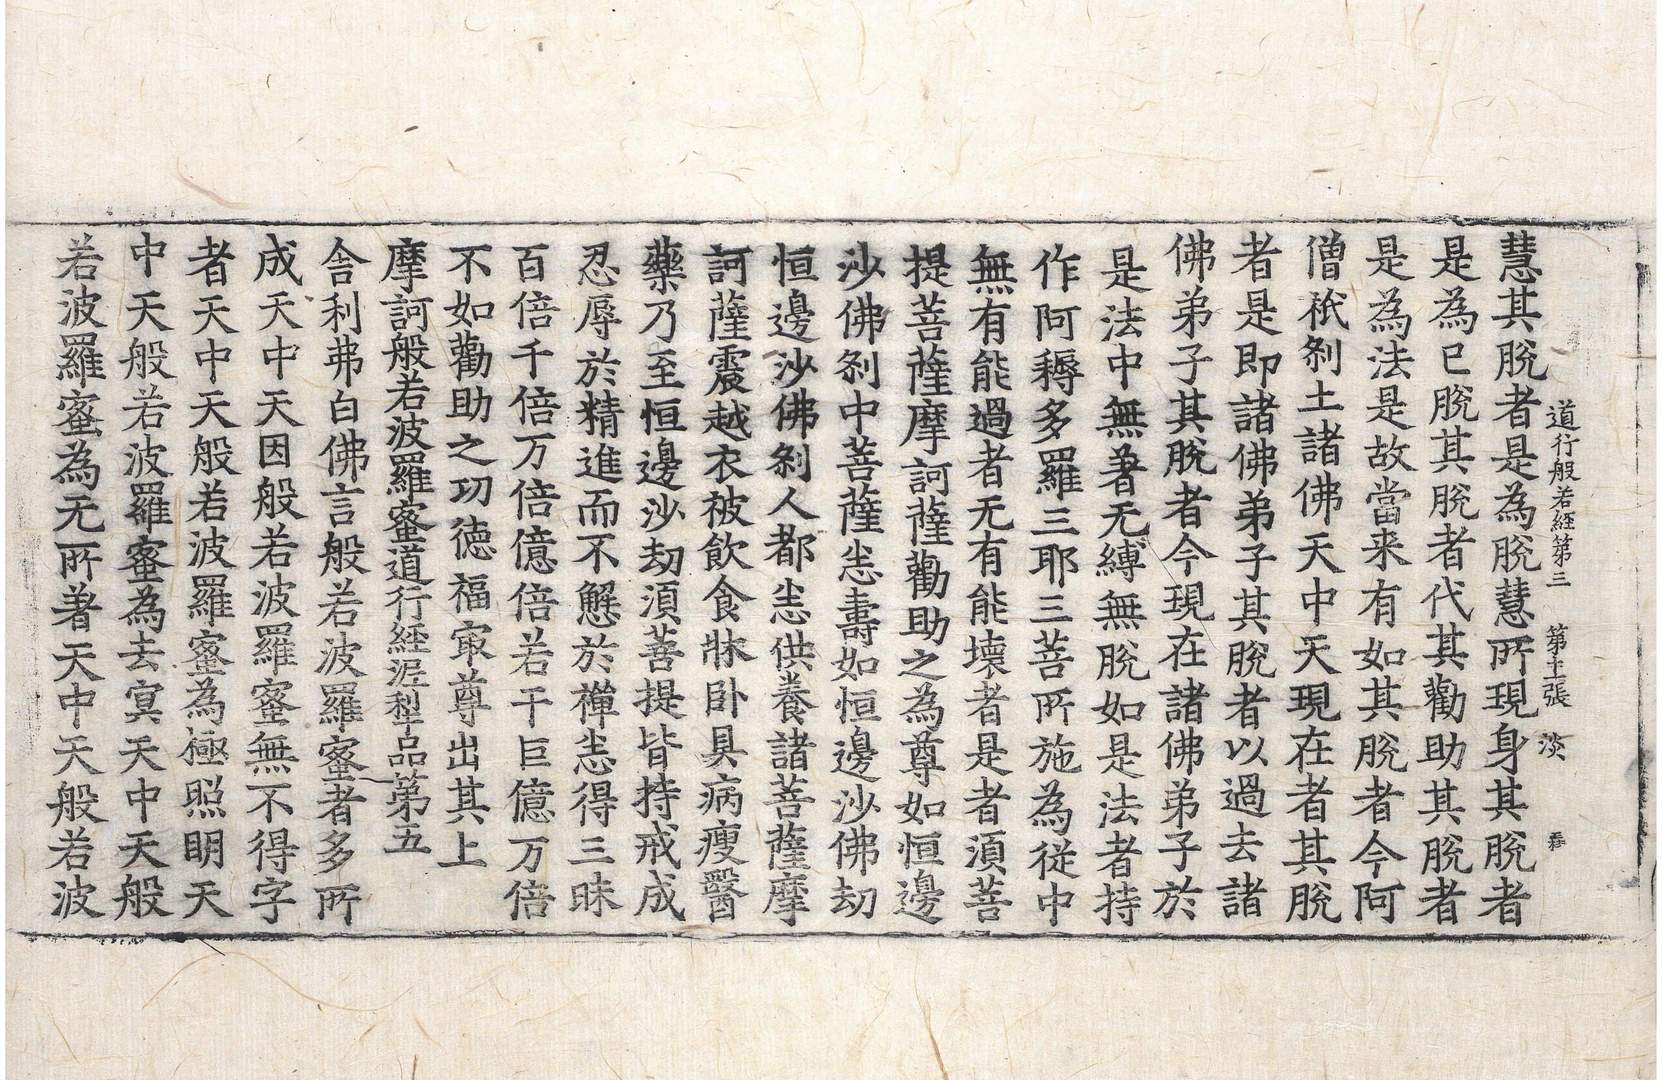 道行般若経第三 第十二張 淡
慧其脫者是為脫慧所現身其脫者
是為已脫其脫者代其勸助其脫者
是為法是故當来有如其脫者今阿
僧祇剎土諸佛天中天現在者其脫
者是即諸佛弟子其脫者以過去諸
佛弟子其脫者今現在諸佛弟子於
是法中無著无縛無脫如是法者持
作阿耨多羅三耶三菩所施為從中
無有能過者无有能壞者是者須菩
提菩薩摩訶薩勸助之為尊如恒邊
沙佛剎中菩薩悉壽如恒邊沙佛劫
恒邊沙佛剎人都悉供養諸菩薩摩
訶薩震越衣被飲食牀臥具病瘦醫
藥乃至恒邊沙劫須菩提皆持戒成
忍辱於精進而不懈於禪悉得三昧
百倍千倍万倍億倍若干巨億万倍
不如勸助之功德福㝡尊出其上
摩訶般若波羅蜜道行経泥犁品第五
舍利弗白佛言般若波羅蜜者多所
成天中天因般若波羅蜜無不得字
者天中天般若波羅蜜為極照明天
中天般若波羅蜜為去冥天中天般
若波羅蜜為无所著天中天般若波